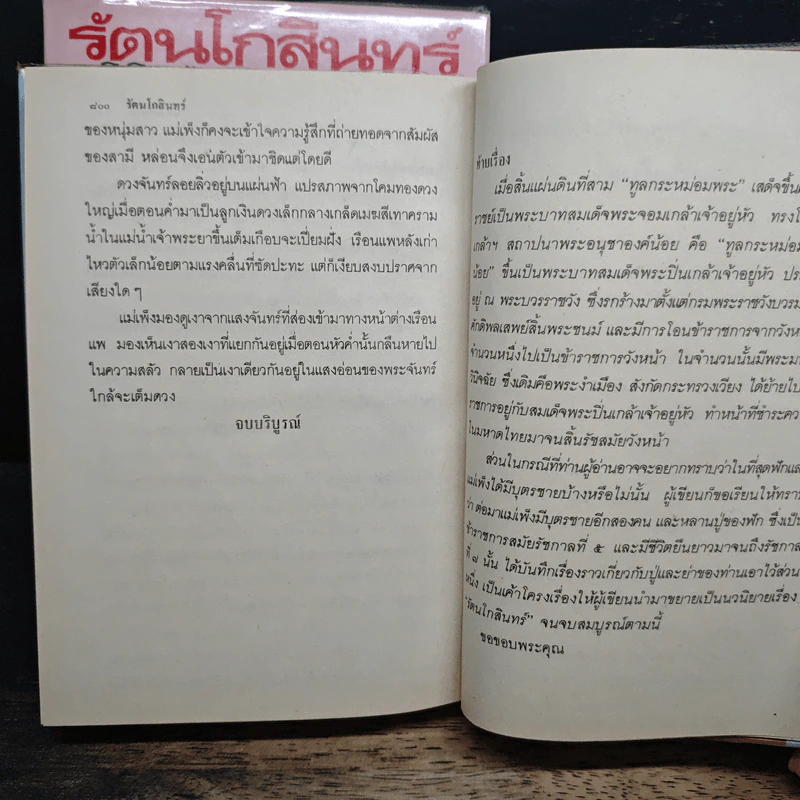 รัตนโกสินทร์
๘๐๐ รัตนโกสินทร์
ของหนุ่มสาว แม่เพ็งก็คงจะเข้าใจความรู้สึกที่ถ่ายทอดจากสัมผัส
ของสามี หล่อนจึงเอนตัวเข้ามาชิดแต่โดยดี
ดวงจันทร์ลอยลิ่วอยู่บนแผ่นฟ้า แปรสภาพจากโคมทองดวง
ใหญ่เมื่อตอนค่ำมาเป็นลูกเงินดวงเล็กกลางเกล็ดเมฆสีเทาคราม
น้ำในแม่น้ำเจ้าพระยาขึ้นเต็มเกือบจะเปี่ยมฝั่ง เรือนแพหลังเก่า
ไหวตัวเล็กน้อยตามแรงคลื่นที่ซัดปะทะ แต่ก็เงียบสงบปราศจาก
เสียงใด ๆ
แม่เพ็งมองดูเงาจากแสงจันทร์ที่ส่องเข้ามาทางหน้าต่างเรือน
แพ มองเห็นเงาสองเงาที่แยกกันอยู่เมื่อตอนหัวค่ำนั้นกลืนหายไป
ในความสลัว กลายเป็นเงาเดียวกันอยู่ในแสงอ่อนของพระจันทร์
ใกล้จะเต็มดวง
จบบริบูรณ์
ท้ายเรื่อง
เมื่อสิ้นแผ่นดินที่สาม “ทูลกระหม่อมพระ” เสด็จขึ้น
ราชย์เป็นพระบาทสมเด็จพระจอมเกล้าเจ้าอยู่หัว
เกล้าฯ สถาปนาพระอนุชาองค์น้อย คือ “ทูลกระหม่อม
น้อย” ขึ้นเป็นพระบาทสมเด็จพระปิ่นเกล้าเจ้าอยู่หัว
อยู่ ณ พระบวรราชวัง ซึ่งรกร้างมาตั้งแต่กรมพระราชวังบวรม
ศักดิพลเสพย์สิ้นพระชนม์ และมีการโอนข้าราชการจากวัง
จำนวนหนึ่งไปเป็นข้าราชการวังหน้า ในจำนวนนั้นมีพระ
วินิจฉัย ซึ่งเดิมคือพระงำเมือง สังกัดกระทรวงเวียง ได้ย้ายไป
ราชการอยู่กับสมเด็จพระปิ่นเกล้าเจ้าอยู่หัว ทำหน้าที่ชำระคว
ในมหาดไทยมาจนสิ้นรัชสมัยวังหน้า
ส่วนในกรณีที่ท่านผู้อ่านอาจจะอยากทราบว่าในที่สุดฟักแล
แม่เพ็งได้มีบุตรชายบ้างหรือไม่นั้น ผู้เขียนก็ขอเรียนให้ทรา
ว่า ต่อมาแม่เพ็งมีบุตรชายอีกสองคน และหลานปู่ของฟัก ซึ่งเป็น
ข้าราชการสมัยรัชกาลที่ ๕ และมีชีวิตยืนยาวมาจนถึงรัชกาล
ที่ ๗ นั้น ได้บันทึกเรื่องราวเกี่ยวกับปู่และย่าของท่านเอาไว้ส่วน
หนึ่ง เป็นเค้าโครงเรื่องให้ผู้เขียนนำมาขยายเป็นนวนิยายเรื่อง
“รัตนโกสินทร์” จนจบสมบูรณ์ตามนี้
ขอขอบพระคุณ